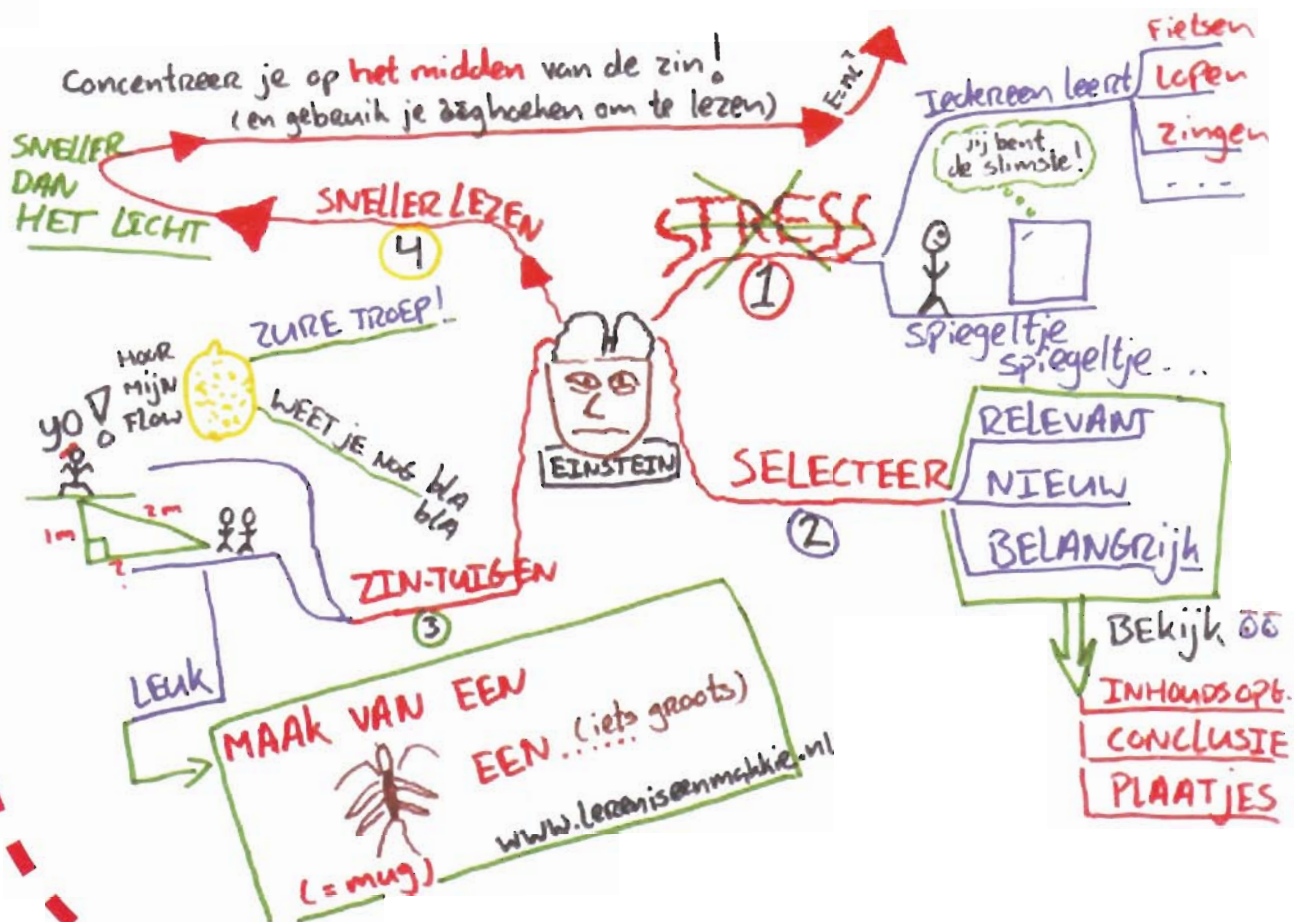 Concentreer je op het midden van de zin!
(en gebruik je ooghoeken om te lezen)
E=mc²
SNELLER
DAN
HET LICHT
SNELLER LEZEN
4
STRESS
1
Iedereen leert
Fietsen
Lopen
Zingen
...
Jij bent
de slimste!
Spiegeltje
spiegeltje...
EINSTEIN
SELECTEER
2
RELEVANT
NIEUW
BELANGRijk
BEkijk
INHOUDSOPG.
CONCLUSIE
PLAATjES
ZIN-TUIGEN
3
ZURE TROEP!
WEET jE NOG blA
blA
HOOR
MijN
FLOW
YO!
1m
2m
?
LEUK
MAAK VAN EEN
EEN ...... (iets groots)
(= mug)
www.lereniseenmakkie.nl